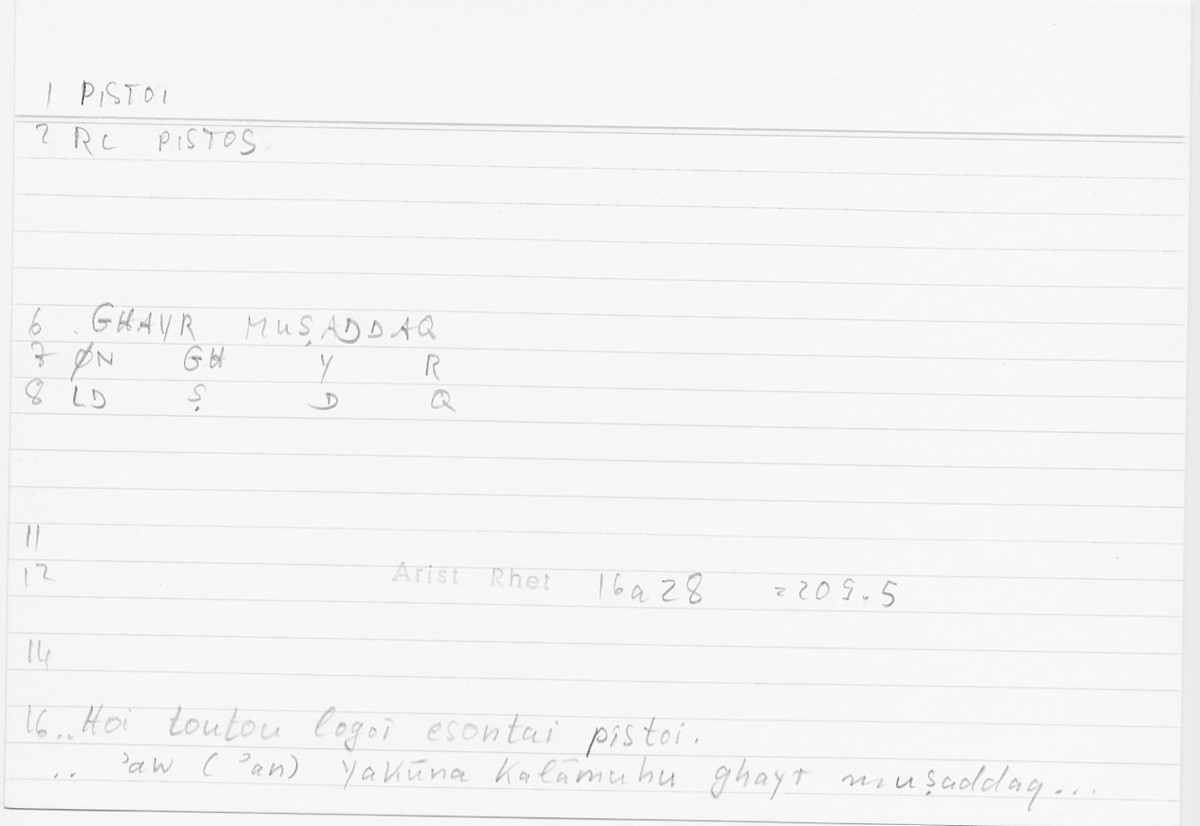 1 PISTOI
2 RC PISTOS
6 . GHAYR MUṢADDAQ
7 ØN GH Y R
8 LD Ṣ D Q
11
12 Arist Rhet 16a28 =209.5
14
16.. Hoi toutou logoi esontai pistoi.
.. ʾaw (ʾan) yakūna kalāmuhu ghayr muṣaddaq...